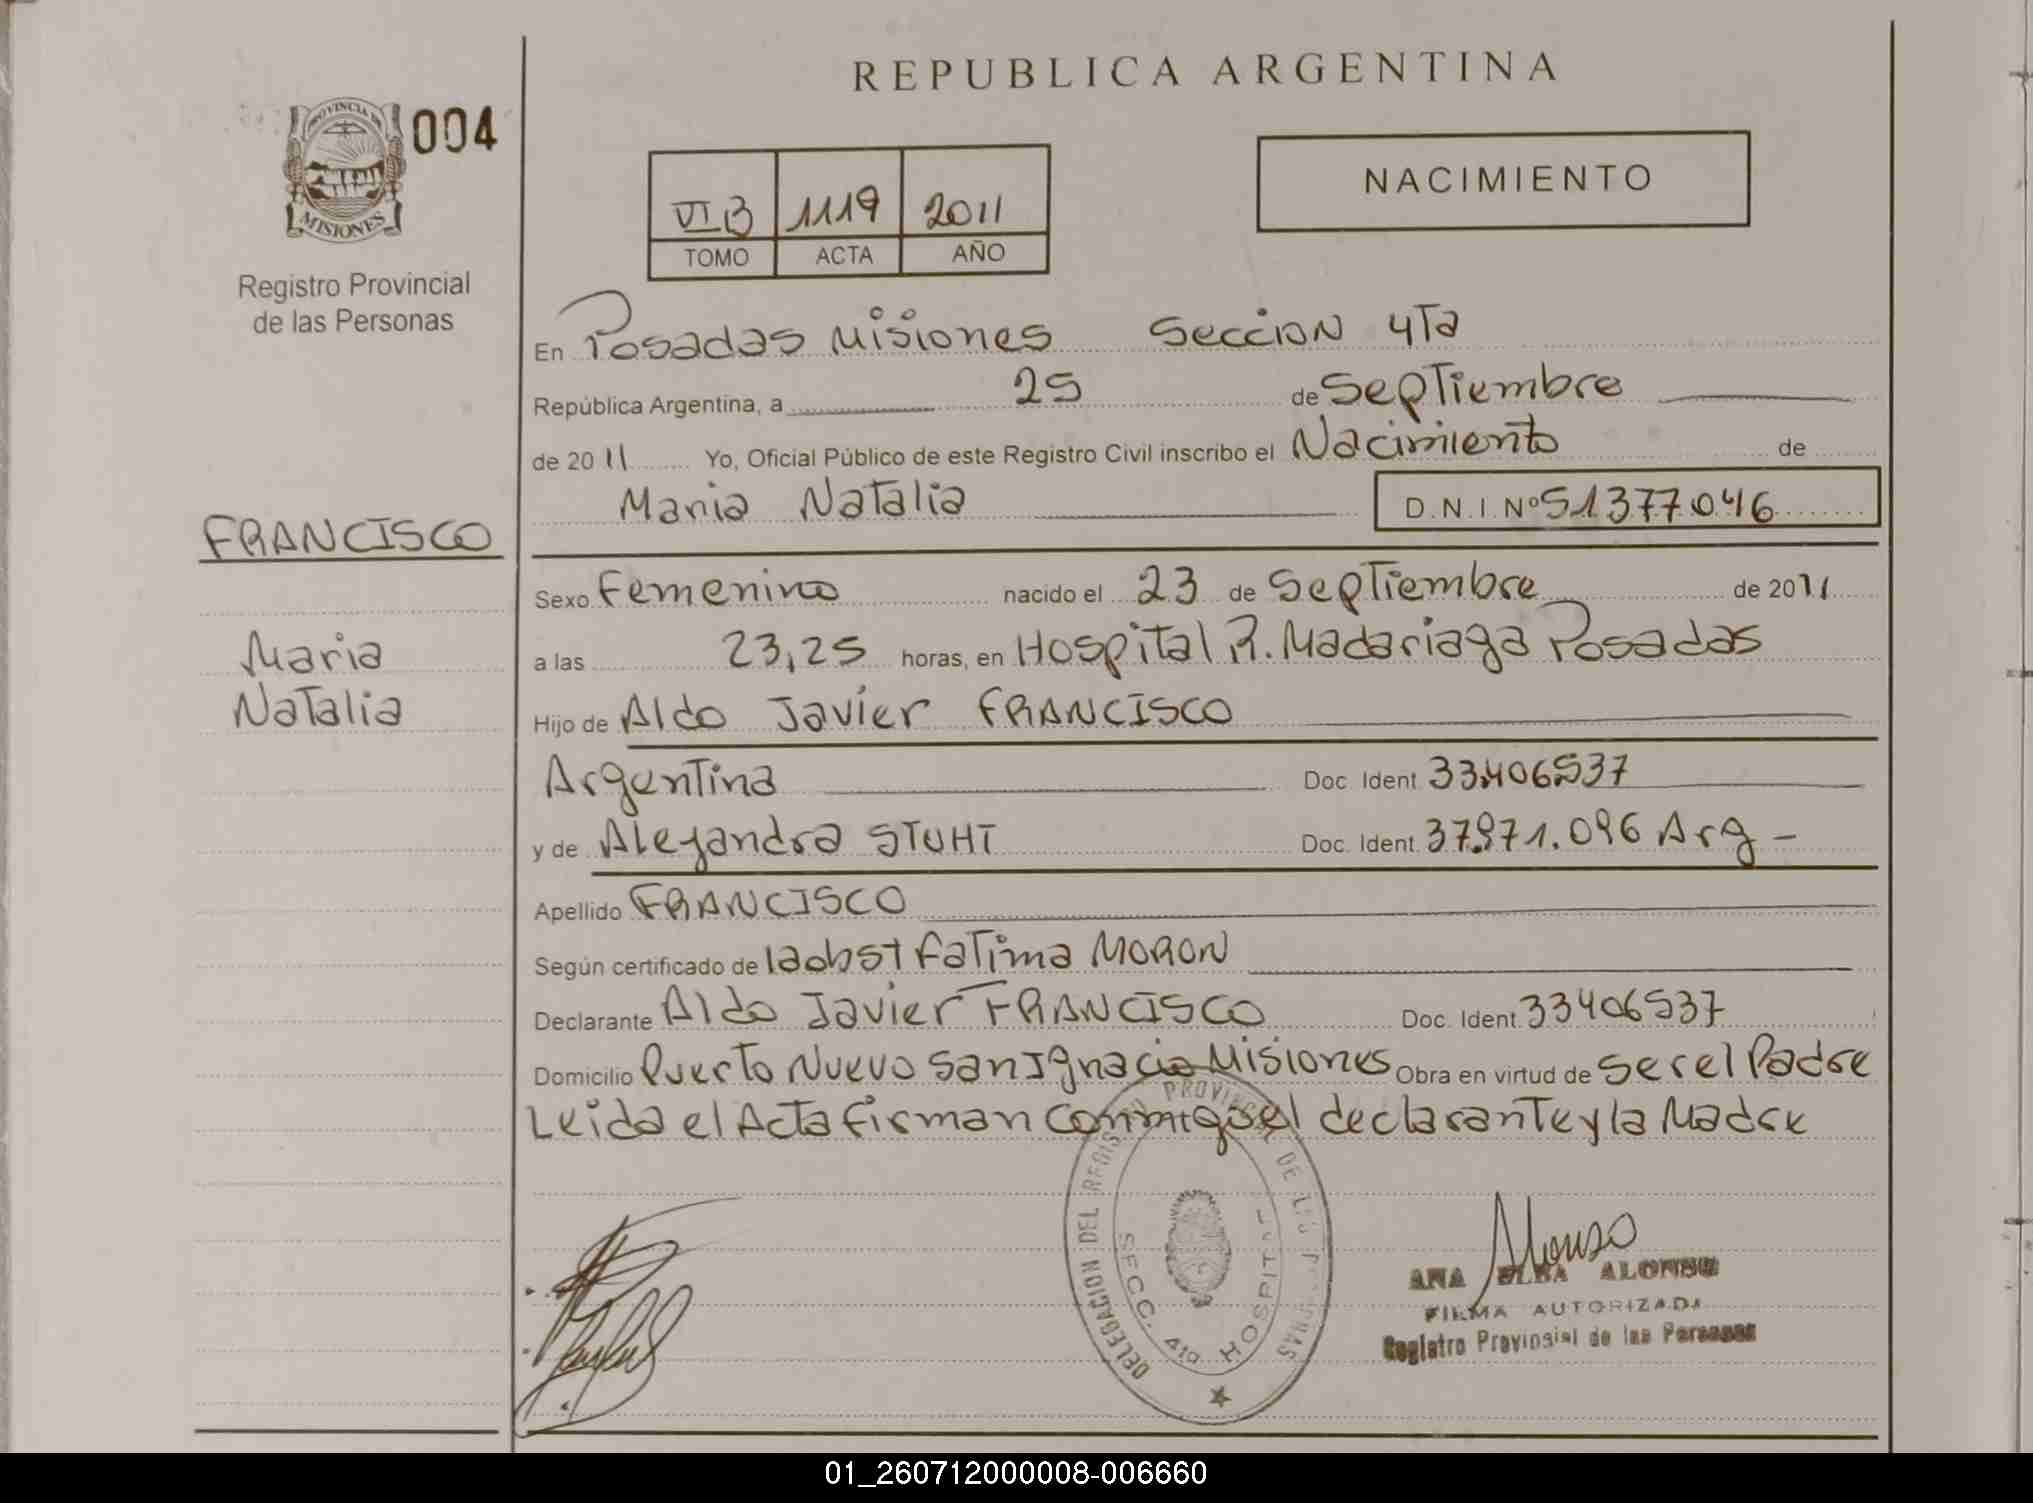 REPUBLICA ARGENTINA
PROVINCIA DE
MISIONES
004
Registro Provincial
de las Personas
NACIMIENTO
VI B 1119 2011
TOMO ACTA AÑO
En Posadas Misiones Seccion 4Ta
República Argentina, a 25 de Septiembre
de 2011 Yo, Oficial Público de este Registro Civil inscribo el Nacimiento de
Maria Natalia D.N.I. Nº 51377046
FRANCISCO
Maria
Natalia
Sexo Femenino nacido el 23 de Septiembre de 2011
a las 23,25 horas, en Hospital R. Madariaga Posadas
Hijo de Aldo Javier FRANCISCO
Argentina Doc. Ident. 33.406.537
y de Alejandra STUHT Doc. Ident. 37.971.096 Arg -
Apellido FRANCISCO
Según certificado de la obst Fatima MORON
Declarante Aldo Javier FRANCISCO Doc. Ident. 33406537
Domicilio Puerto Nuevo San Ignacio Misiones Obra en virtud de Ser el Padre
Leida el Acta firman conmigo el declarante y la Madre
DELEGACION DEL REGISTRO PROVINCIAL DE LAS PERSONAS
SECC. 4ta HOSPITAL
Alonso
ANA ELBA ALONSO
FIRMA AUTORIZADA
Registro Provincial de las Personas
01_260712000008-006660